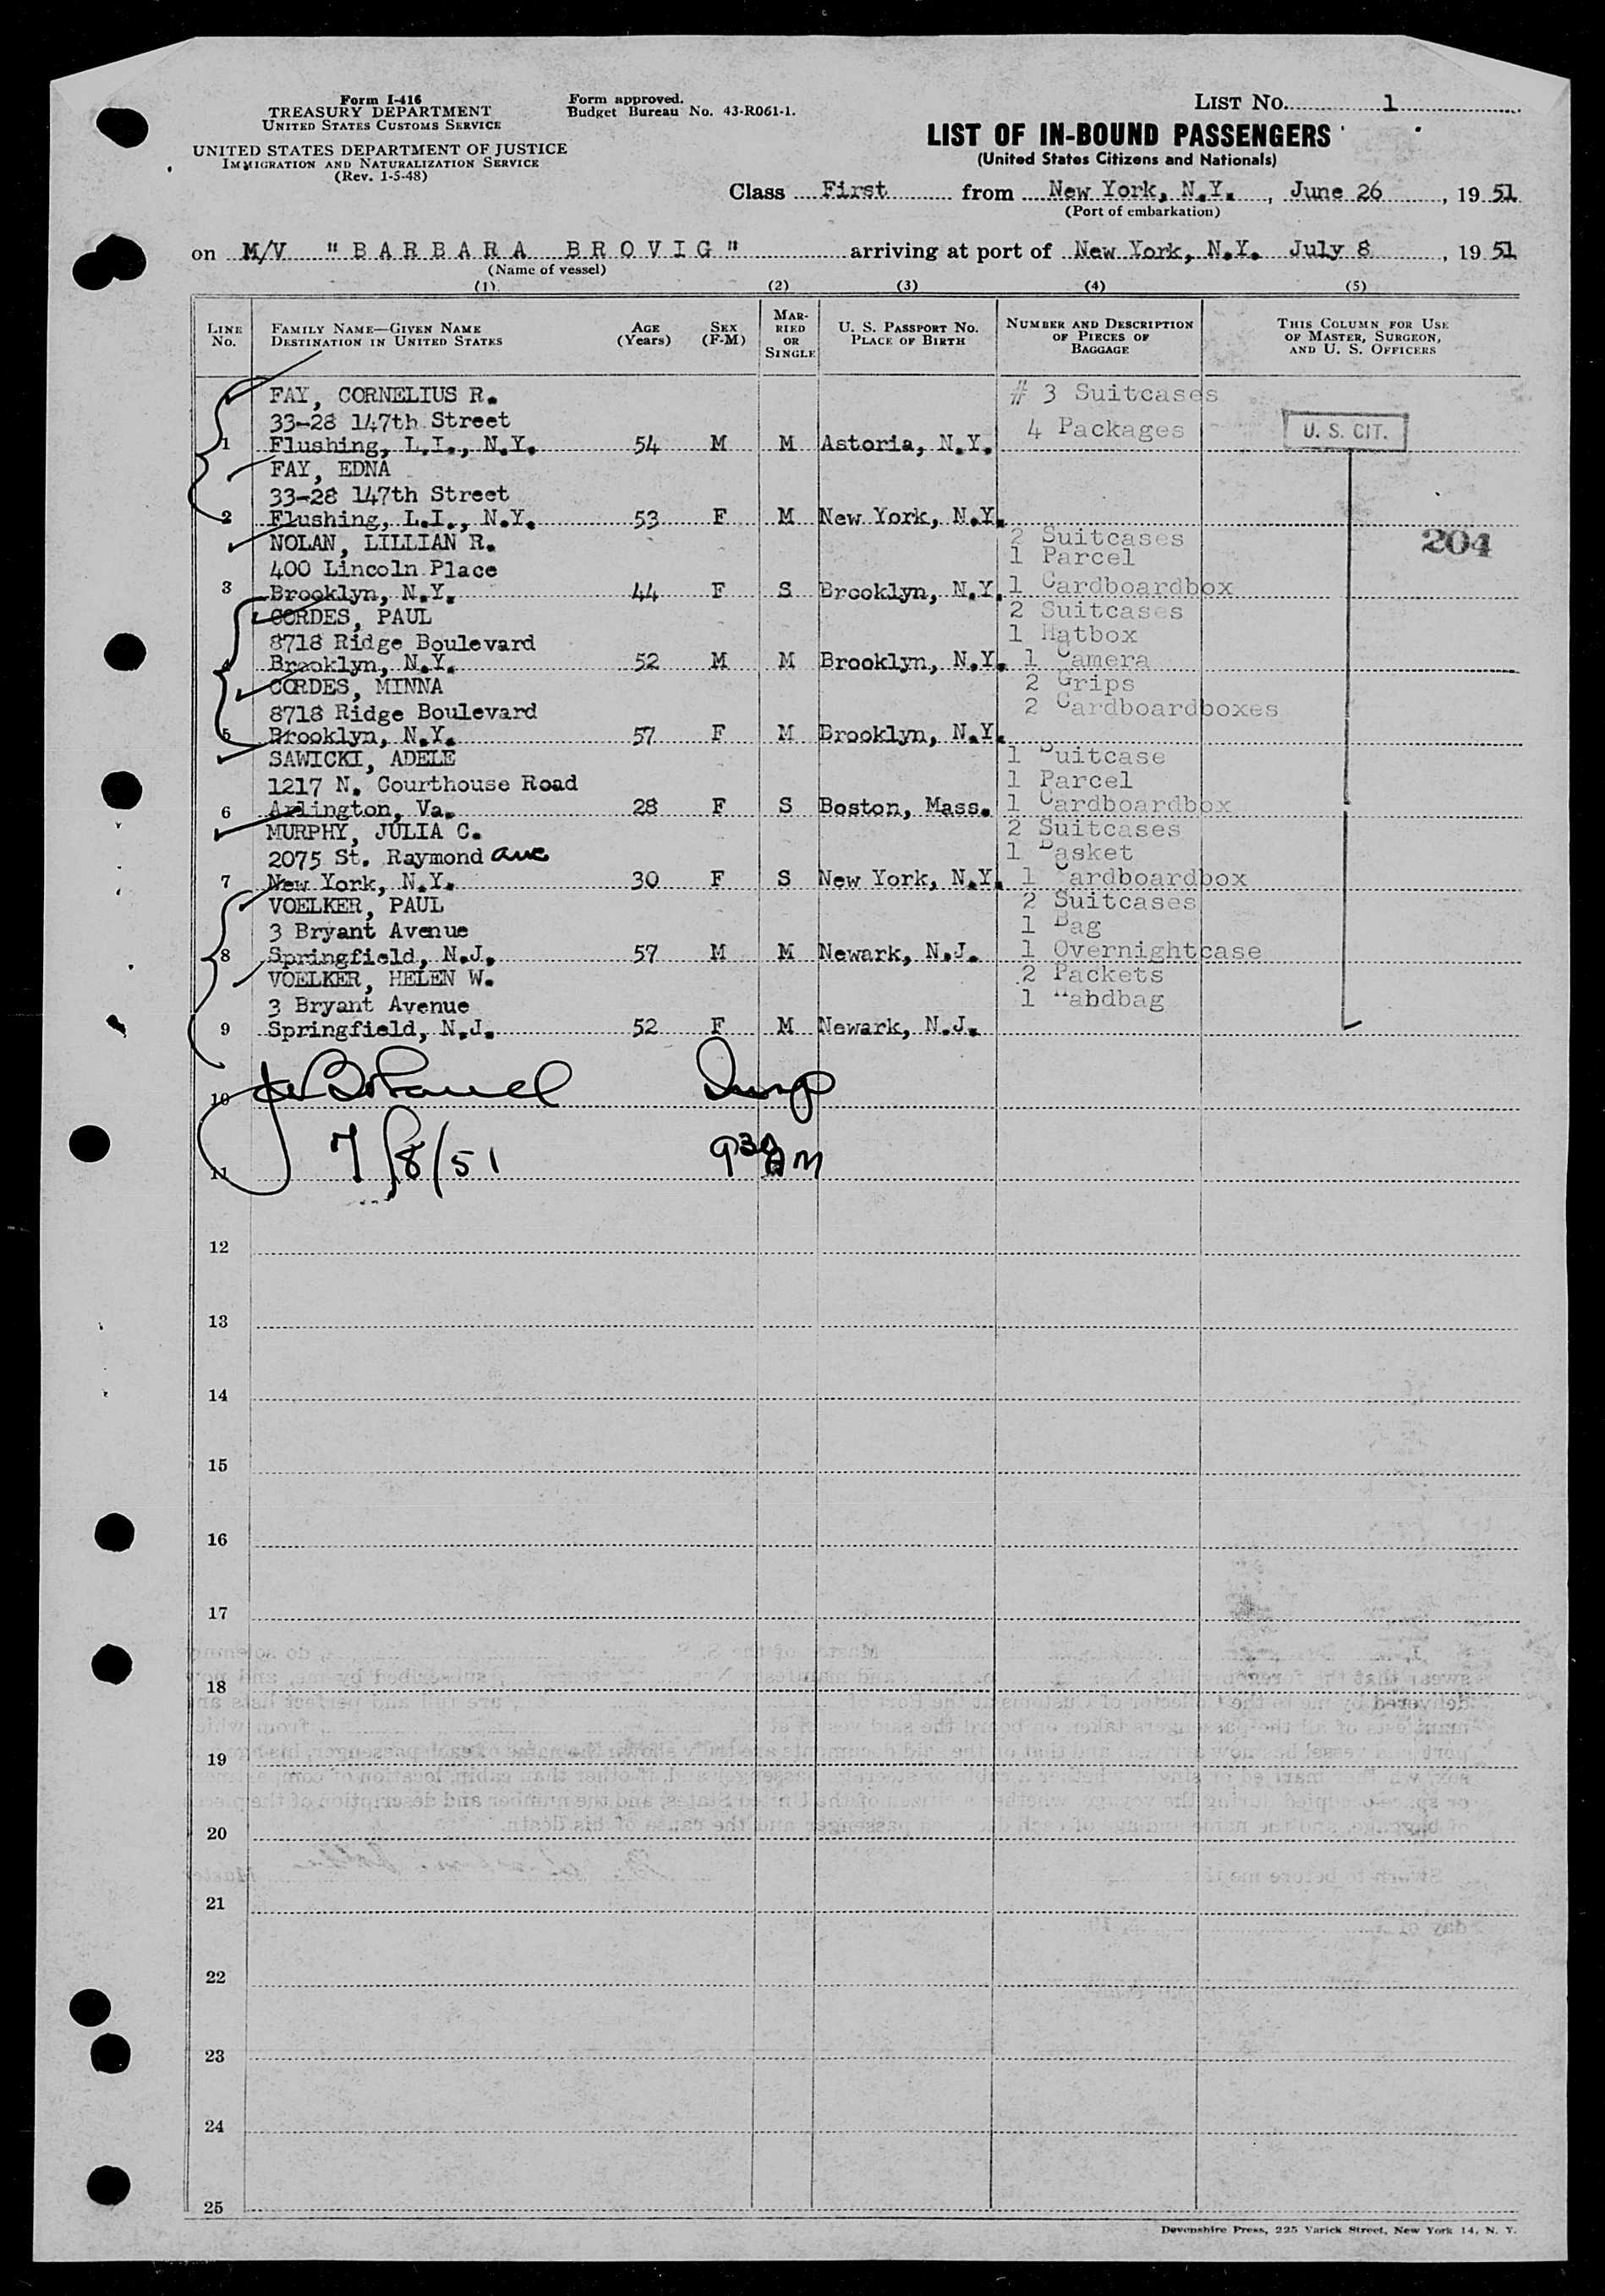 Form I-416
TREASURY DEPARTMENT
UNITED STATES CUSTOMS SERVICE
UNITED STATES DEPARTMENT OF JUSTICE
IMMIGRATION AND NATURALIZATION SERVICE
(Rev. 1-5-48)
Form approved.
Budget Bureau No. 43-R061-1.
LIST NO. 1
LIST OF IN-BOUND PASSENGERS
(United States Citizens and Nationals)
Class First from New York, N.Y., June 26, 1951
(Port of embarkation)
on M/V "BARBARA BROVIG" arriving at port of New York, N.Y. July 8, 1951
(Name of vessel)
(1) (2) (3) (4) (5)
LINE NO. FAMILY NAME—GIVEN NAME DESTINATION IN UNITED STATES AGE (Years) SEX (F-M) MARRIED OR SINGLE U. S. PASSPORT NO. PLACE OF BIRTH NUMBER AND DESCRIPTION OF PIECES OF BAGGAGE THIS COLUMN FOR USE OF MASTER, SURGEON, AND U. S. OFFICERS
FAY, CORNELIUS R. # 3 Suitcases
33-28 147th Street 4 Packages U. S. CIT.
1 Flushing, L.I., N.Y. 54 M M Astoria, N.Y.
FAY, EDNA
33-28 147th Street
2 Flushing, L.I., N.Y. 53 F M New York, N.Y.
NOLAN, LILLIAN R. 2 Suitcases 204
400 Lincoln Place 1 Parcel
3 Brooklyn, N.Y. 44 F S Brooklyn, N.Y. 1 Cardboardbox
CORDES, PAUL 2 Suitcases
8718 Ridge Boulevard 1 Hatbox
4 Brooklyn, N.Y. 52 M M Brooklyn, N.Y. 1 Camera
CORDES, MINNA 2 Grips
8718 Ridge Boulevard 2 Cardboardboxes
5 Brooklyn, N.Y. 57 F M Brooklyn, N.Y.
SAWICKI, ADELE 1 Suitcase
1217 N. Courthouse Road 1 Parcel
6 Arlington, Va. 28 F S Boston, Mass. 1 Cardboardbox
MURPHY, JULIA C. 2 Suitcases
2075 St. Raymond ave 1 Basket
7 New York, N.Y. 30 F S New York, N.Y. 1 Cardboardbox
VOELKER, PAUL 2 Suitcases
3 Bryant Avenue 1 Bag
8 Springfield, N.J. 57 M M Newark, N.J. 1 Overnightcase
VOELKER, HELEN W. 2 Packets
3 Bryant Avenue 1 Habdbag
9 Springfield, N.J. 52 F M Newark, N.J.
10
11 7/8/51 930 AM
12
13
14
15
16
17
18
19
20
21
22
23
24
25
Devonshire Press, 225 Varick Street, New York 14, N. Y.